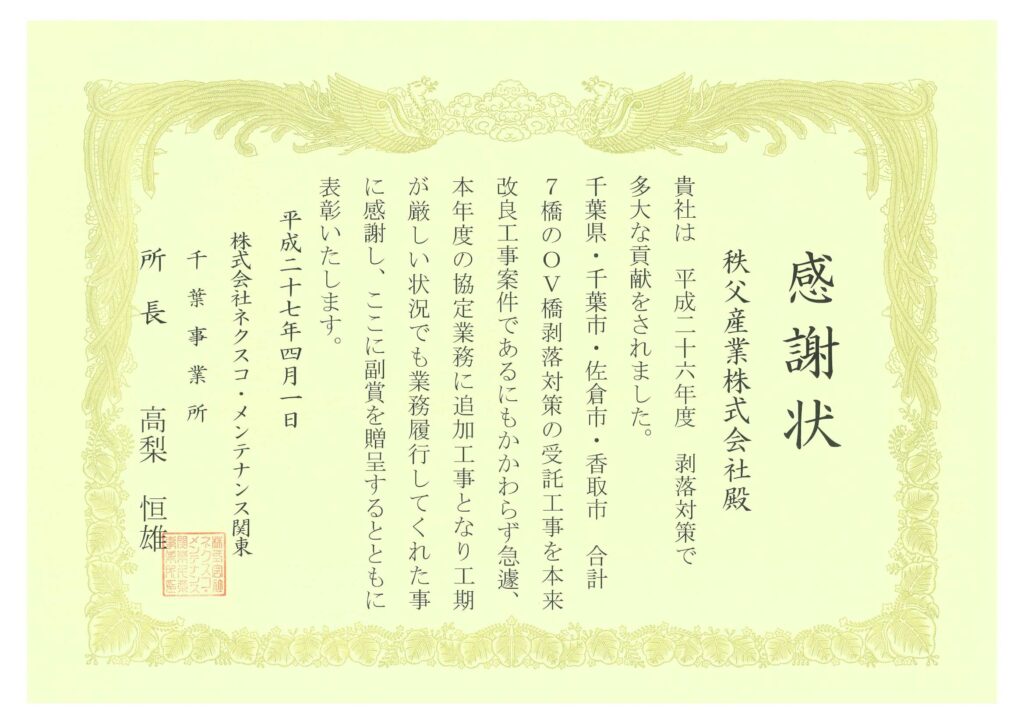 感謝状
秩父産業株式会社殿
貴社は　平成二十六年度　剥落対策で
多大な貢献をされました。
千葉県・千葉市・佐倉市・香取市　合計
７橋のＯＶ橋剥落対策の受託工事を本来
改良工事案件であるにもかかわらず急遽、
本年度の協定業務に追加工事となり工期
が厳しい状況でも業務履行してくれた事
に感謝し、ここに副賞を贈呈するとともに
表彰いたします。
平成二十七年四月一日
株式会社ネクスコ・メンテナンス関東
千葉事業所
所長　高梨　恒雄